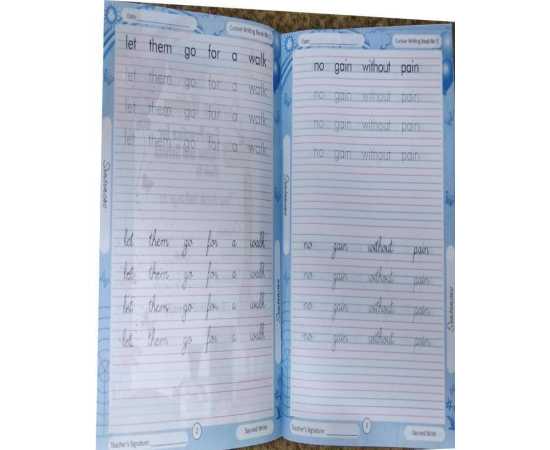 Date:
Cursive Writing Book No 5
let them go for a walk
let them go for a walk
let them go for a walk
let them go for a walk
Sentences
let them go for a walk
let them go for a walk
let them go for a walk
let them go for a walk
Teacher's Signature:
2
Second Write
Date:
Cursive Writing Book No 5
no gain without pain
no gain without pain
no gain without pain
no gain without pain
Sentences
no gain without pain
no gain without pain
no gain without pain
no gain without pain
Sentences
Sentences
Teacher's Signature:
Second Write